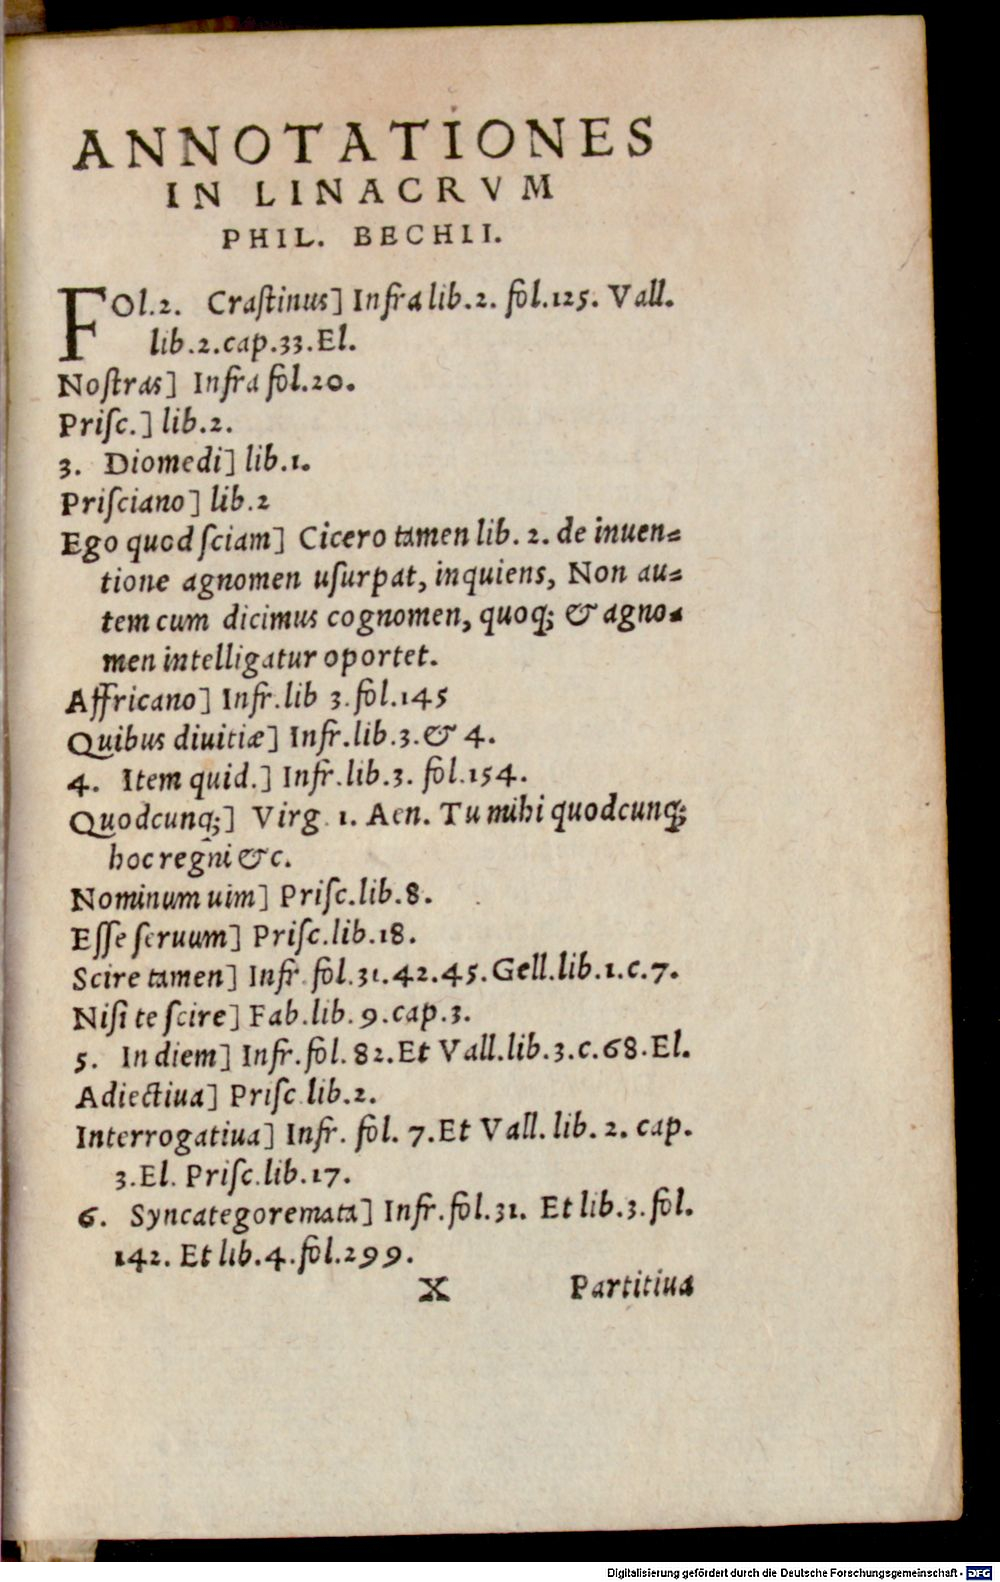 ANNOTATIONES
IN LINACRVM
PHIL. BECHII.
FOl.2. Craſtinus] Infra lib.2. fol.125. Vall.
lib.2.cap.33.El.
Noſtras] Infra fol.20.
Priſc.] lib.2.
3. Diomedi] lib.1.
Priſciano] lib.2
Ego quod ſciam] Cicero tamen lib. 2. de inuen=
tione agnomen uſurpat, inquiens, Non au=
tem cum dicimus cognomen, quoq; & agno=
men intelligatur oportet.
Affricano] Infr.lib 3.fol.145
Quibus diuitiæ] Infr.lib.3.& 4.
4. Item quid.] Infr.lib.3. fol.154.
Quodcunq;] Virg. 1. Aen. Tu mihi quodcunq;
hoc regni &c.
Nominum uim] Priſc.lib.8.
Eſſe ſeruum] Priſc.lib.18.
Scire tamen] Infr.fol.31.42.45.Gell.lib.1.c.7.
Niſi te ſcire] Fab.lib.9.cap.3.
5. In diem] Infr.fol.82.Et Vall.lib.3.c.68.El.
Adiectiua] Priſc.lib.2.
Interrogatiua] Infr. fol. 7.Et Vall. lib. 2. cap.
3.El. Priſc.lib.17.
6. Syncategoremata] Infr.fol.31. Et lib.3.fol.
142. Et lib.4.fol.299.
X Partitiua
Digitalisierung gefördert durch die Deutsche Forschungsgemeinschaft - DFG